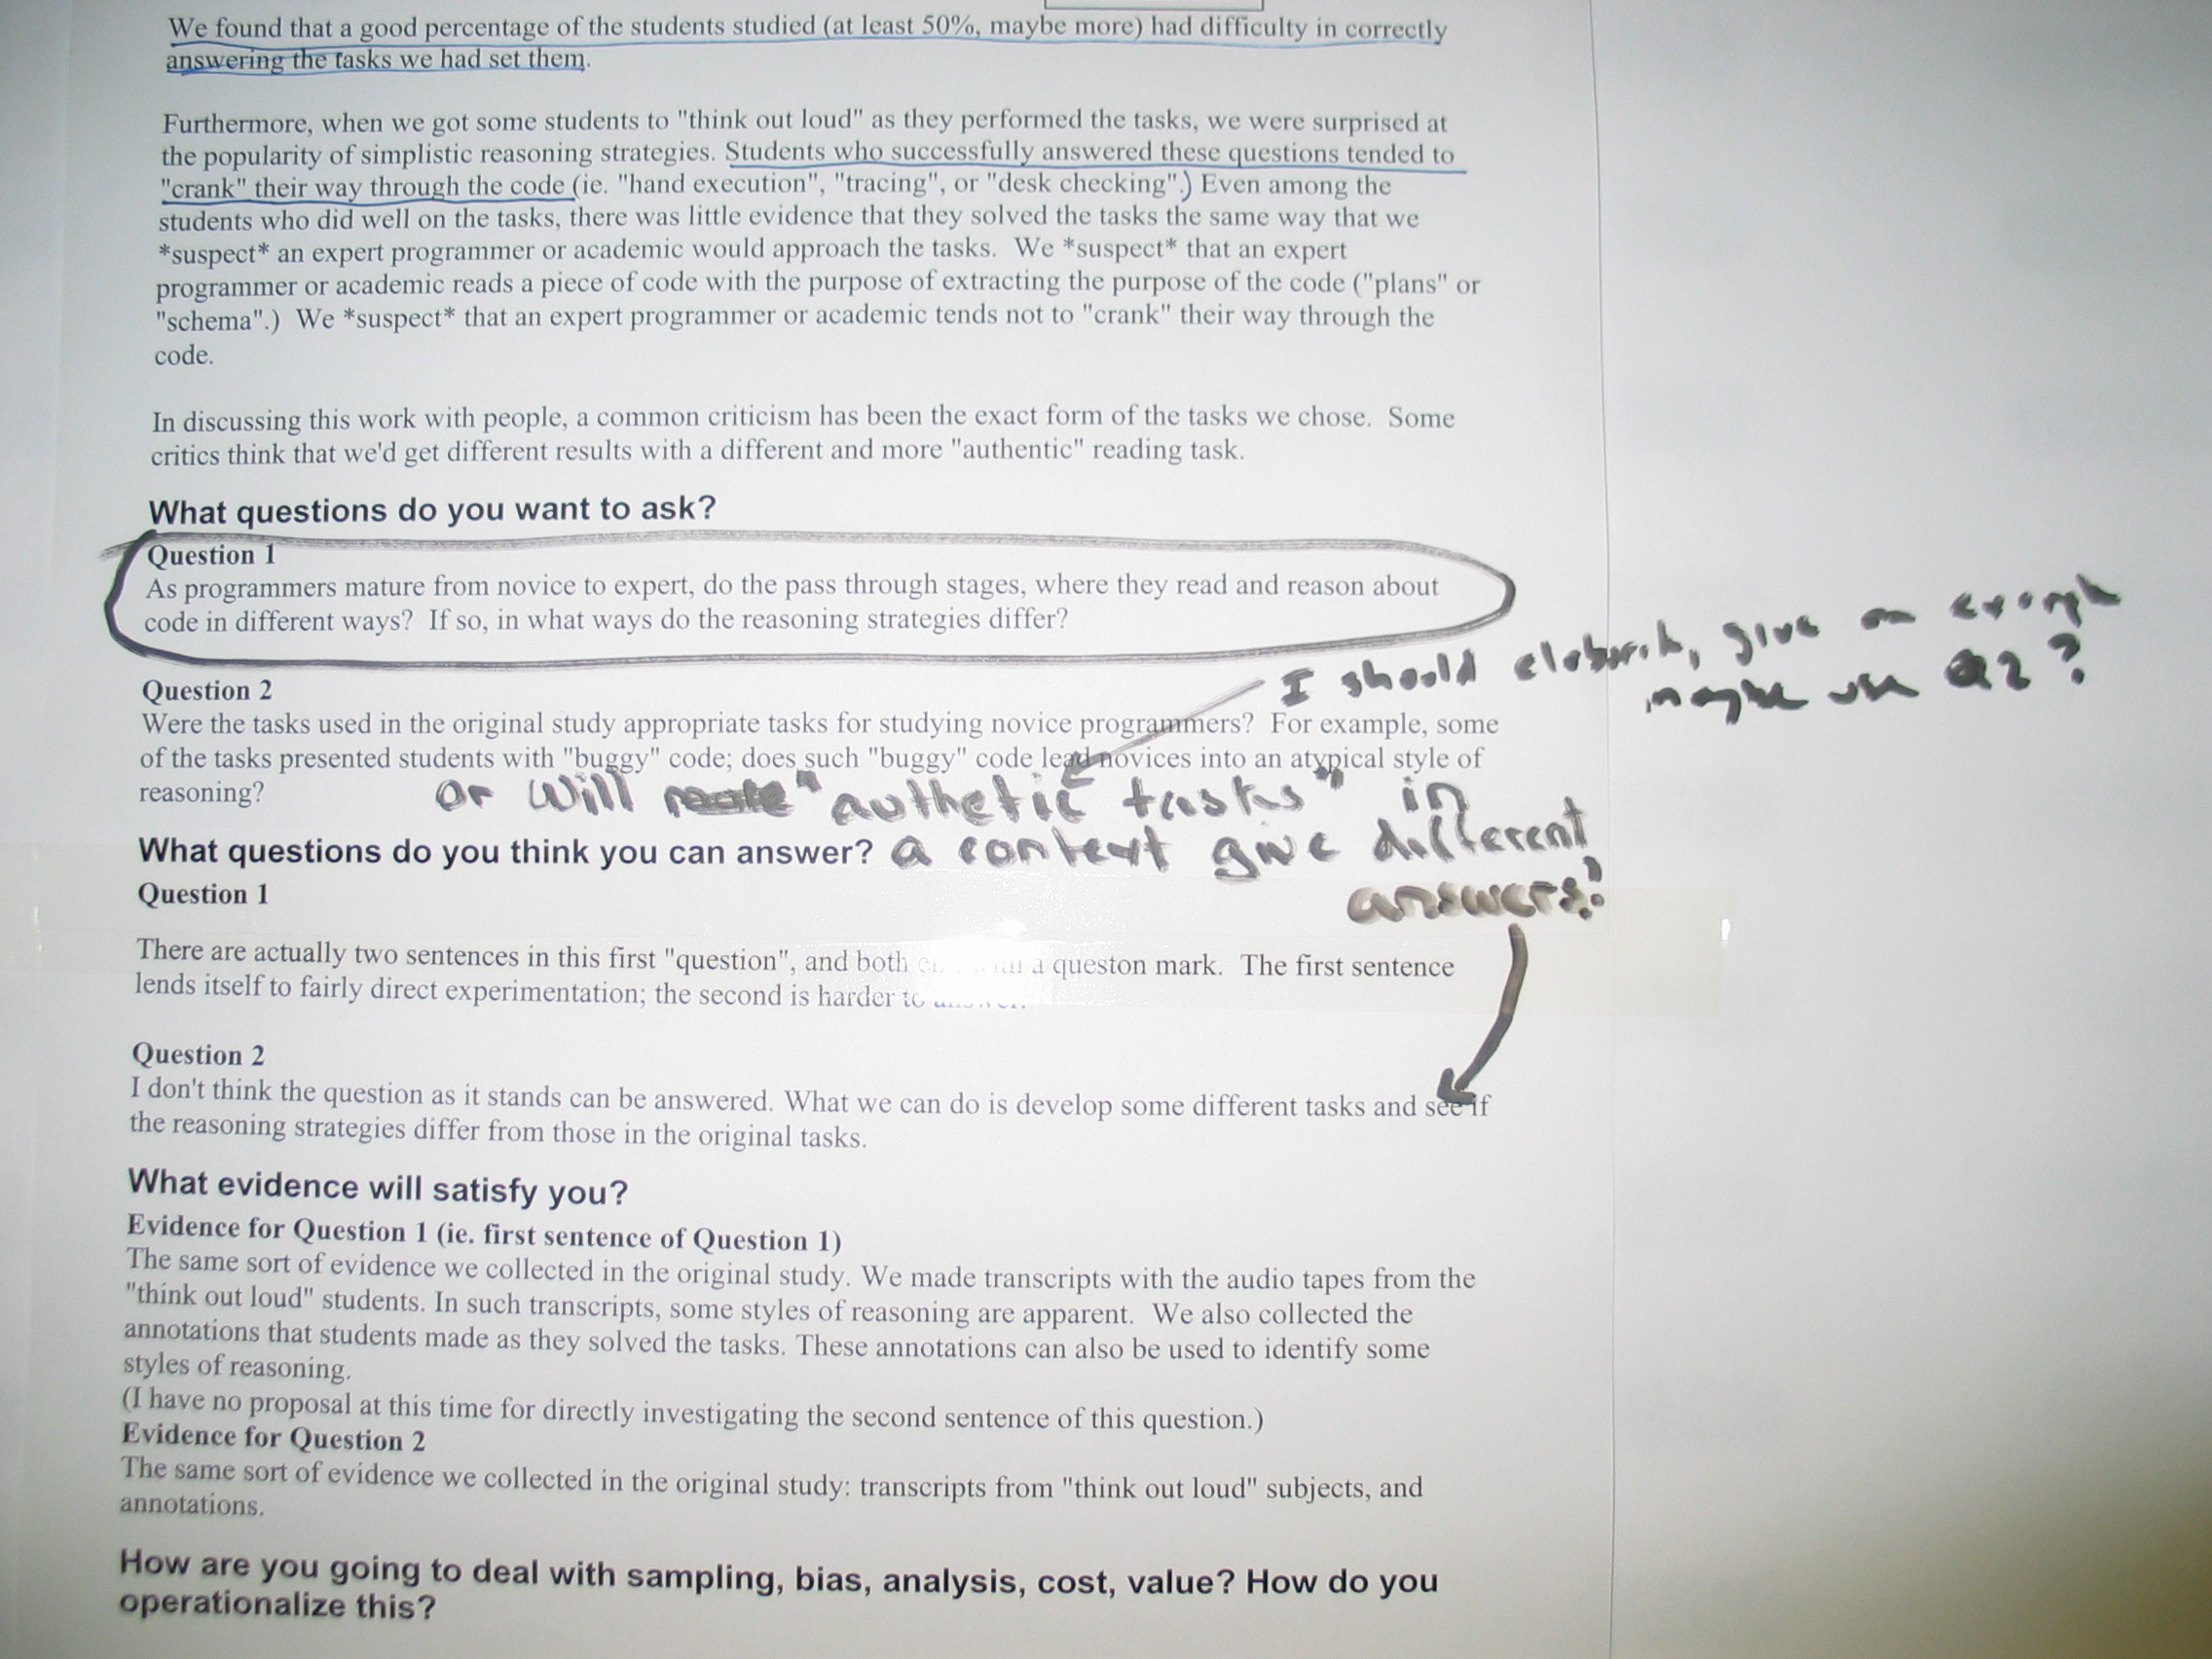 We found that a good percentage of the students studied (at least 50%, maybe more) had difficulty in correctly
answering the tasks we had set them.
Furthermore, when we got some students to "think out loud" as they performed the tasks, we were surprised at
the popularity of simplistic reasoning strategies. Students who successfully answered these questions tended to
"crank" their way through the code (ie. "hand execution", "tracing", or "desk checking".) Even among the
students who did well on the tasks, there was little evidence that they solved the tasks the same way that we
*suspect* an expert programmer or academic would approach the tasks. We *suspect* that an expert
programmer or academic reads a piece of code with the purpose of extracting the purpose of the code ("plans" or
"schema".) We *suspect* that an expert programmer or academic tends not to "crank" their way through the
code.
In discussing this work with people, a common criticism has been the exact form of the tasks we chose. Some
critics think that we'd get different results with a different and more "authentic" reading task.
What questions do you want to ask?
Question 1
As programmers mature from novice to expert, do the pass through stages, where they read and reason about
code in different ways? If so, in what ways do the reasoning strategies differ?
I should elaborate, give an example
maybe use Q2?
Question 2
Were the tasks used in the original study appropriate tasks for studying novice programmers? For example, some
of the tasks presented students with "buggy" code; does such "buggy" code lead novices into an atypical style of
reasoning?
or will "authetic tasks" in
a context give different
answers?
What questions do you think you can answer?
Question 1
There are actually two sentences in this first "question", and both a queston mark. The first sentence
lends itself to fairly direct experimentation; the second is harder to
Question 2
I don't think the question as it stands can be answered. What we can do is develop some different tasks and see if
the reasoning strategies differ from those in the original tasks.
What evidence will satisfy you?
Evidence for Question 1 (ie. first sentence of Question 1)
The same sort of evidence we collected in the original study. We made transcripts with the audio tapes from the
"think out loud" students. In such transcripts, some styles of reasoning are apparent. We also collected the
annotations that students made as they solved the tasks. These annotations can also be used to identify some
styles of reasoning.
(I have no proposal at this time for directly investigating the second sentence of this question.)
Evidence for Question 2
The same sort of evidence we collected in the original study: transcripts from "think out loud" subjects, and
annotations.
How are you going to deal with sampling, bias, analysis, cost, value? How do you
operationalize this?